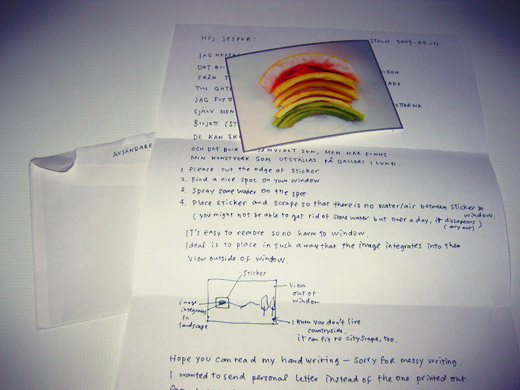 HEJ JESPER!
JAG
DET BL
FRÅN T
TILL GÖT
JAG FLYT
SJÄLV MEN
BILJETT (ST
DE KAN SK
OCH DET BLIR MYCKET SÖM, MEN HÄR FINNS
MIN KONSTVERK SOM UTSTÄLLAS PÅ GALLERI I LUND.
AVSÄNDARE
1. Please cut the edge of sticker
2. Find a nice spot on your window
3. Spray some water on the spot
4. Place sticker and scrape so that there is no water/air between sticker & window
(you might not be able to get rid of some water but over a day, it disappears) (dry out)
It's easy to remove so no harm to window.
Ideal is to place in such a way that the image integrates into the
view outside of window.
Sticker
View out of window
image integrates in landscape
I know you don't live countryside, it can fit to cityscape, too.
Hope you can read my handwriting – sorry for messy writing.
I wanted to send personal letter instead of the one printed out